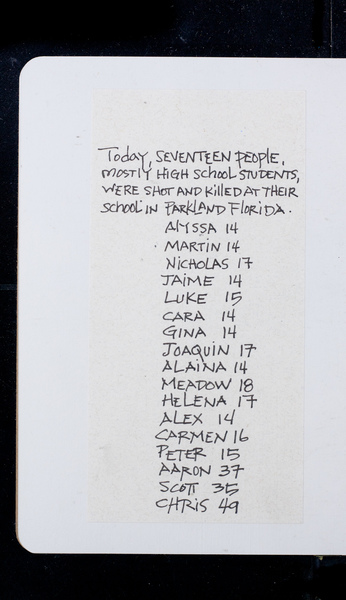 Today, SEVENTEEN PEOPLE,
MOSTLY HIGH SCHOOL STUDENTS,
WERE SHOT AND KILLED AT THEIR
SCHOOL IN PARKLAND FLORIDA.
ALYSSA 14
MARTIN 14
NICHOLAS 17
JAIME 14
LUKE 15
CARA 14
GINA 14
JOAQUIN 17
ALAINA 14
MEADOW 18
HELENA 17
ALEX 14
CARMEN 16
PETER 15
AARON 37
SCOTT 35
CHRIS 49